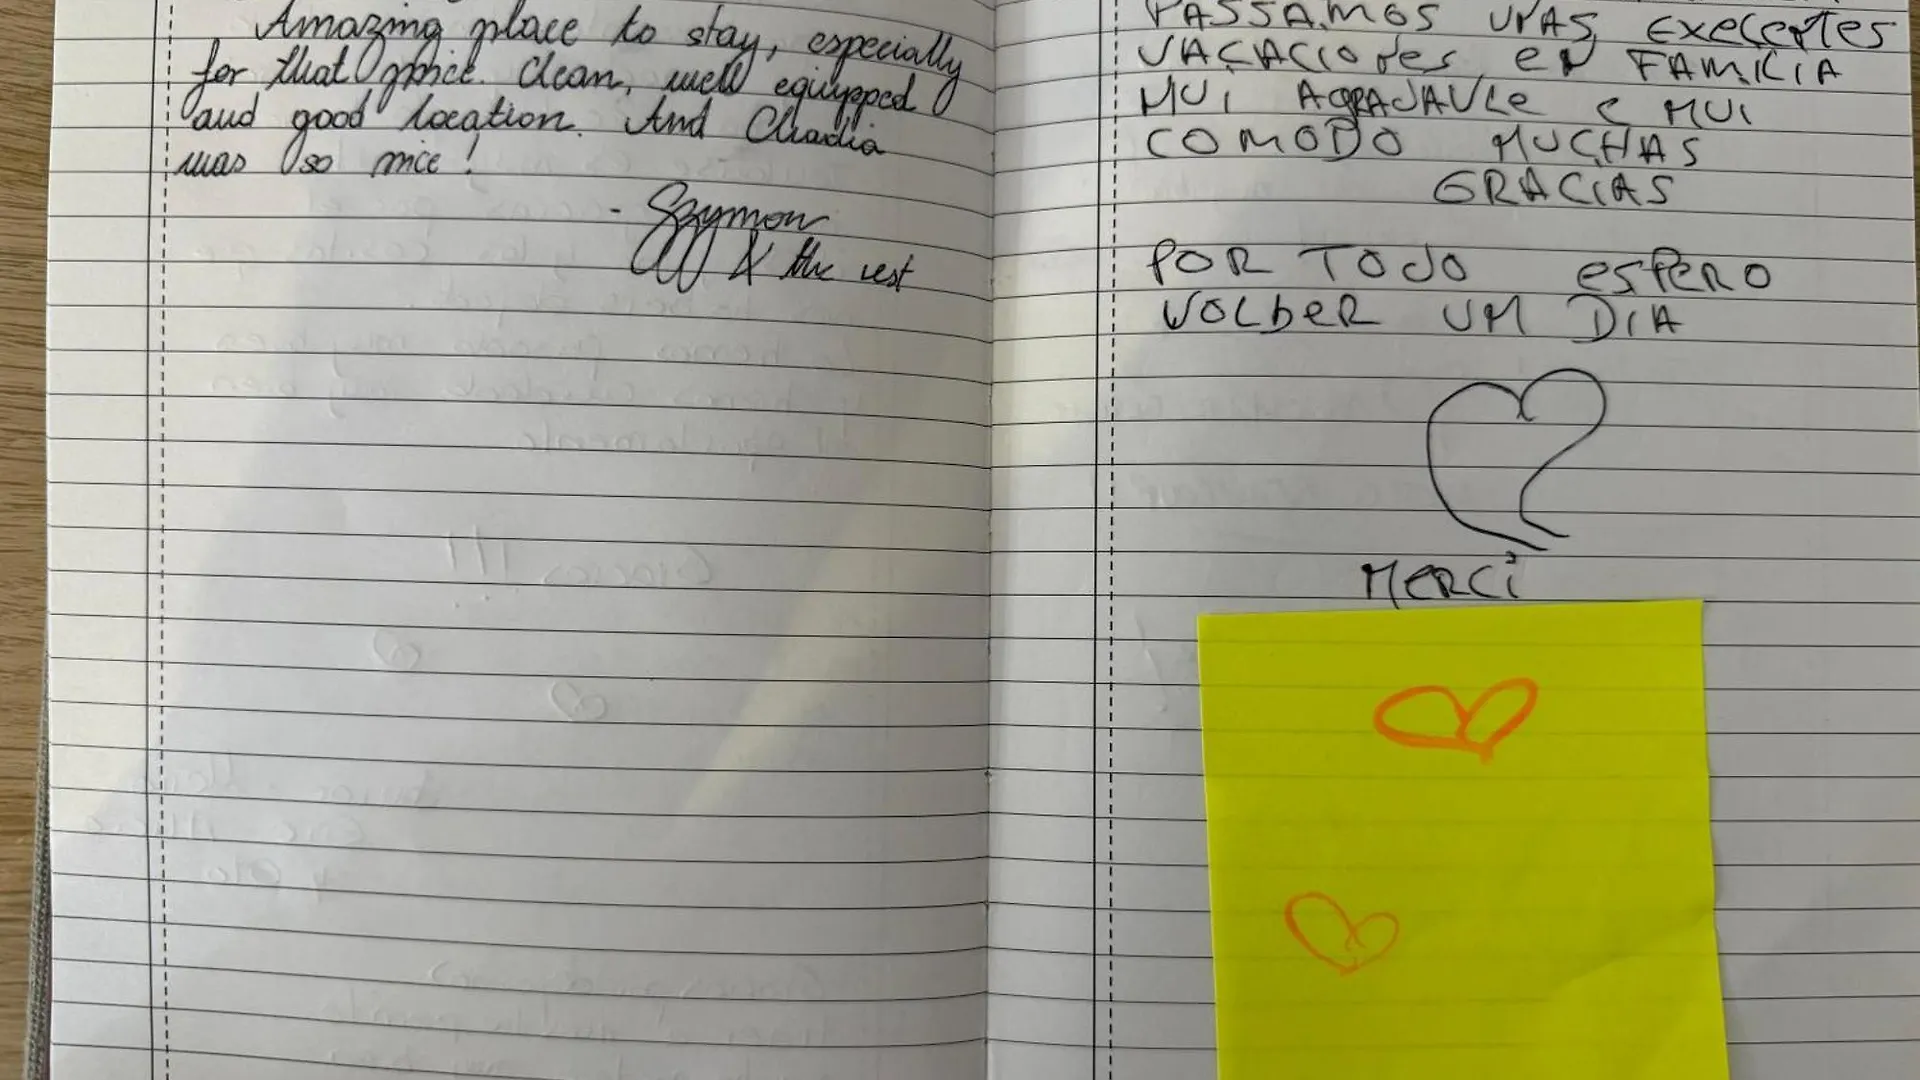 Amazing place to stay, especially
for that price. Clean, well equipped
and good location. And Chadia
was so nice!
- Szymon
& the rest
PASSAMOS UNAS EXECENTES
VACACIONES EN FAMILIA
MUI AGRADAVLE E MUI
COMODO MUCHAS
GRACIAS
POR TODO ESPERO
VOLBER UM DIA
MERCi